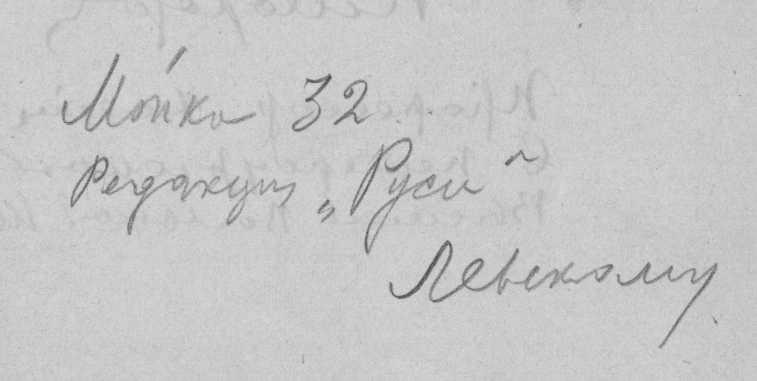 Мойка 32
Редакция „Руси“
Левскому